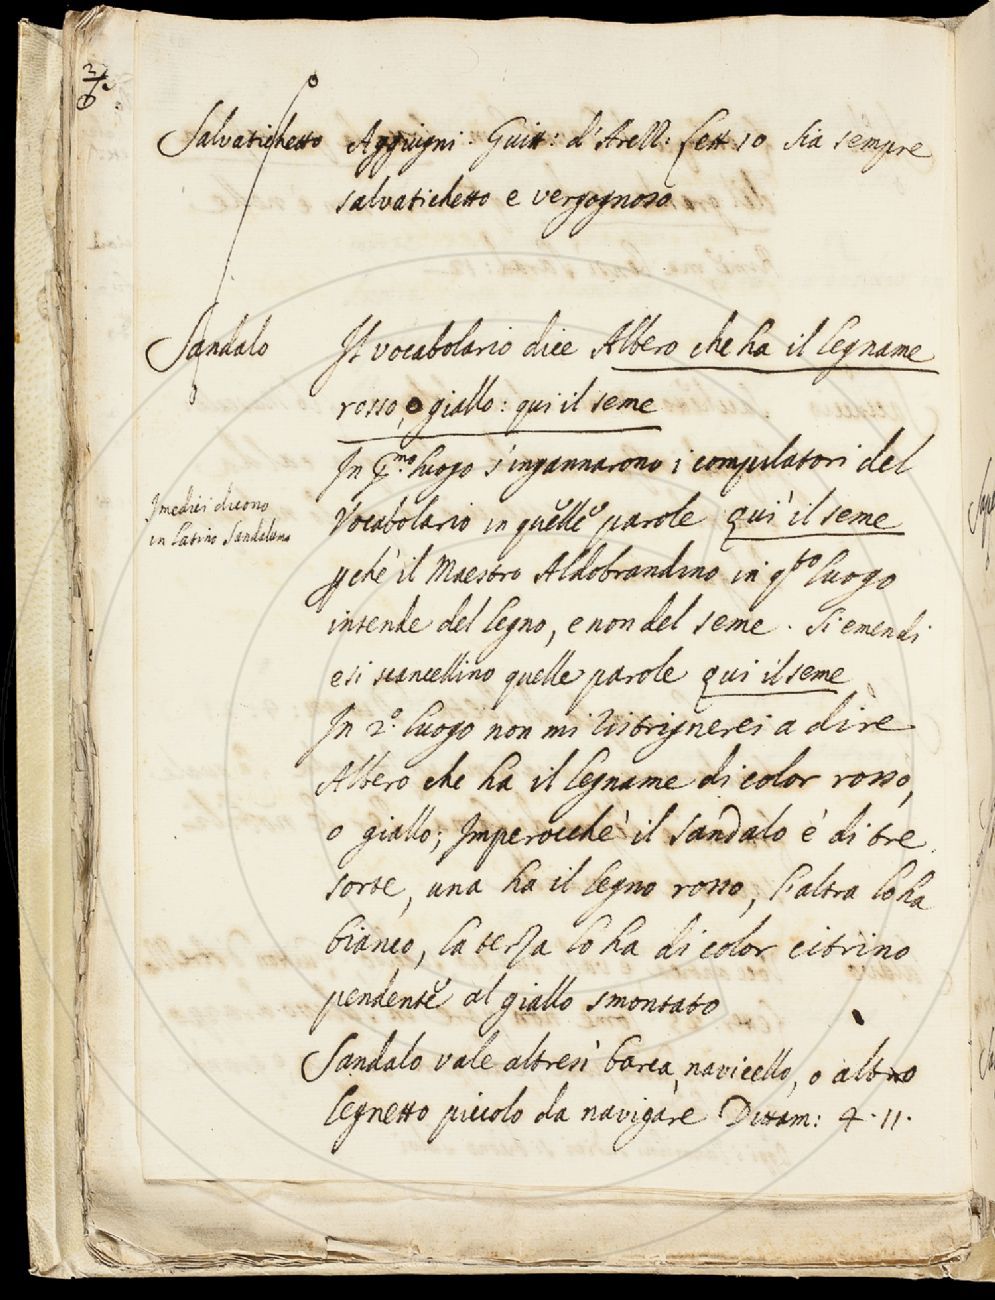 Salvatichetto Aggiugni: Guitt: d'Arell: Lett 10 Sia sempre
salvatichetto e vergognoso
Sandalo Il vocabolario dice Albero che ha il legname
rosso, o giallo: qui il seme
In p.mo luogo s'ingannarono i compilatori del
Vocabolario in quelle parole qui il seme
pchè il Maestro Aldobrandino in q.to luogo
intende del legno, e non del seme. Si emendi
e si scancellino quelle parole qui il seme
In 2.o luogo non mi ristrignerei a dire
Albero che ha il legname di color rosso,
o giallo; Imperocchè il sandalo è di tre
sorte, una ha il legno rosso, l'altra lo ha
bianco, la terza lo ha di color citrino
pendente al giallo smontato
Sandalo vale altresì barca, navicello, o altro
legnetto piccolo da navigare Dittam: 4.11.
I medici dicono
in latino Sandalum